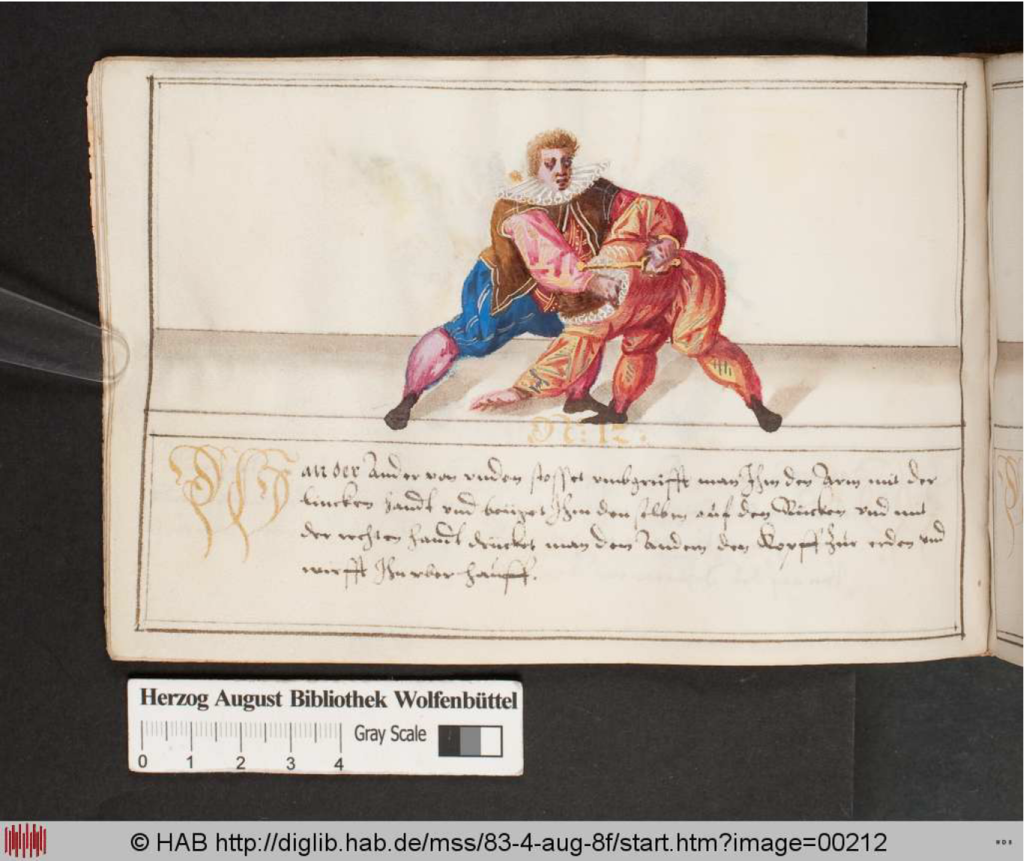 N: 12.
Wan der Ander von vnden stosset vmbgreifft man Ihm den Arm mit der
lincken handt vnd beüget Ihm den selben auf den Rücken vnd mit
der rechten handt drucket man dem Andern den Kopff zur erden vnd
wirfft Ihn vber hauff.
Herzog August Bibliothek Wolfenbüttel
Gray Scale
0 1 2 3 4
© HAB http://diglib.hab.de/mss/83-4-aug-8f/start.htm?image=00212